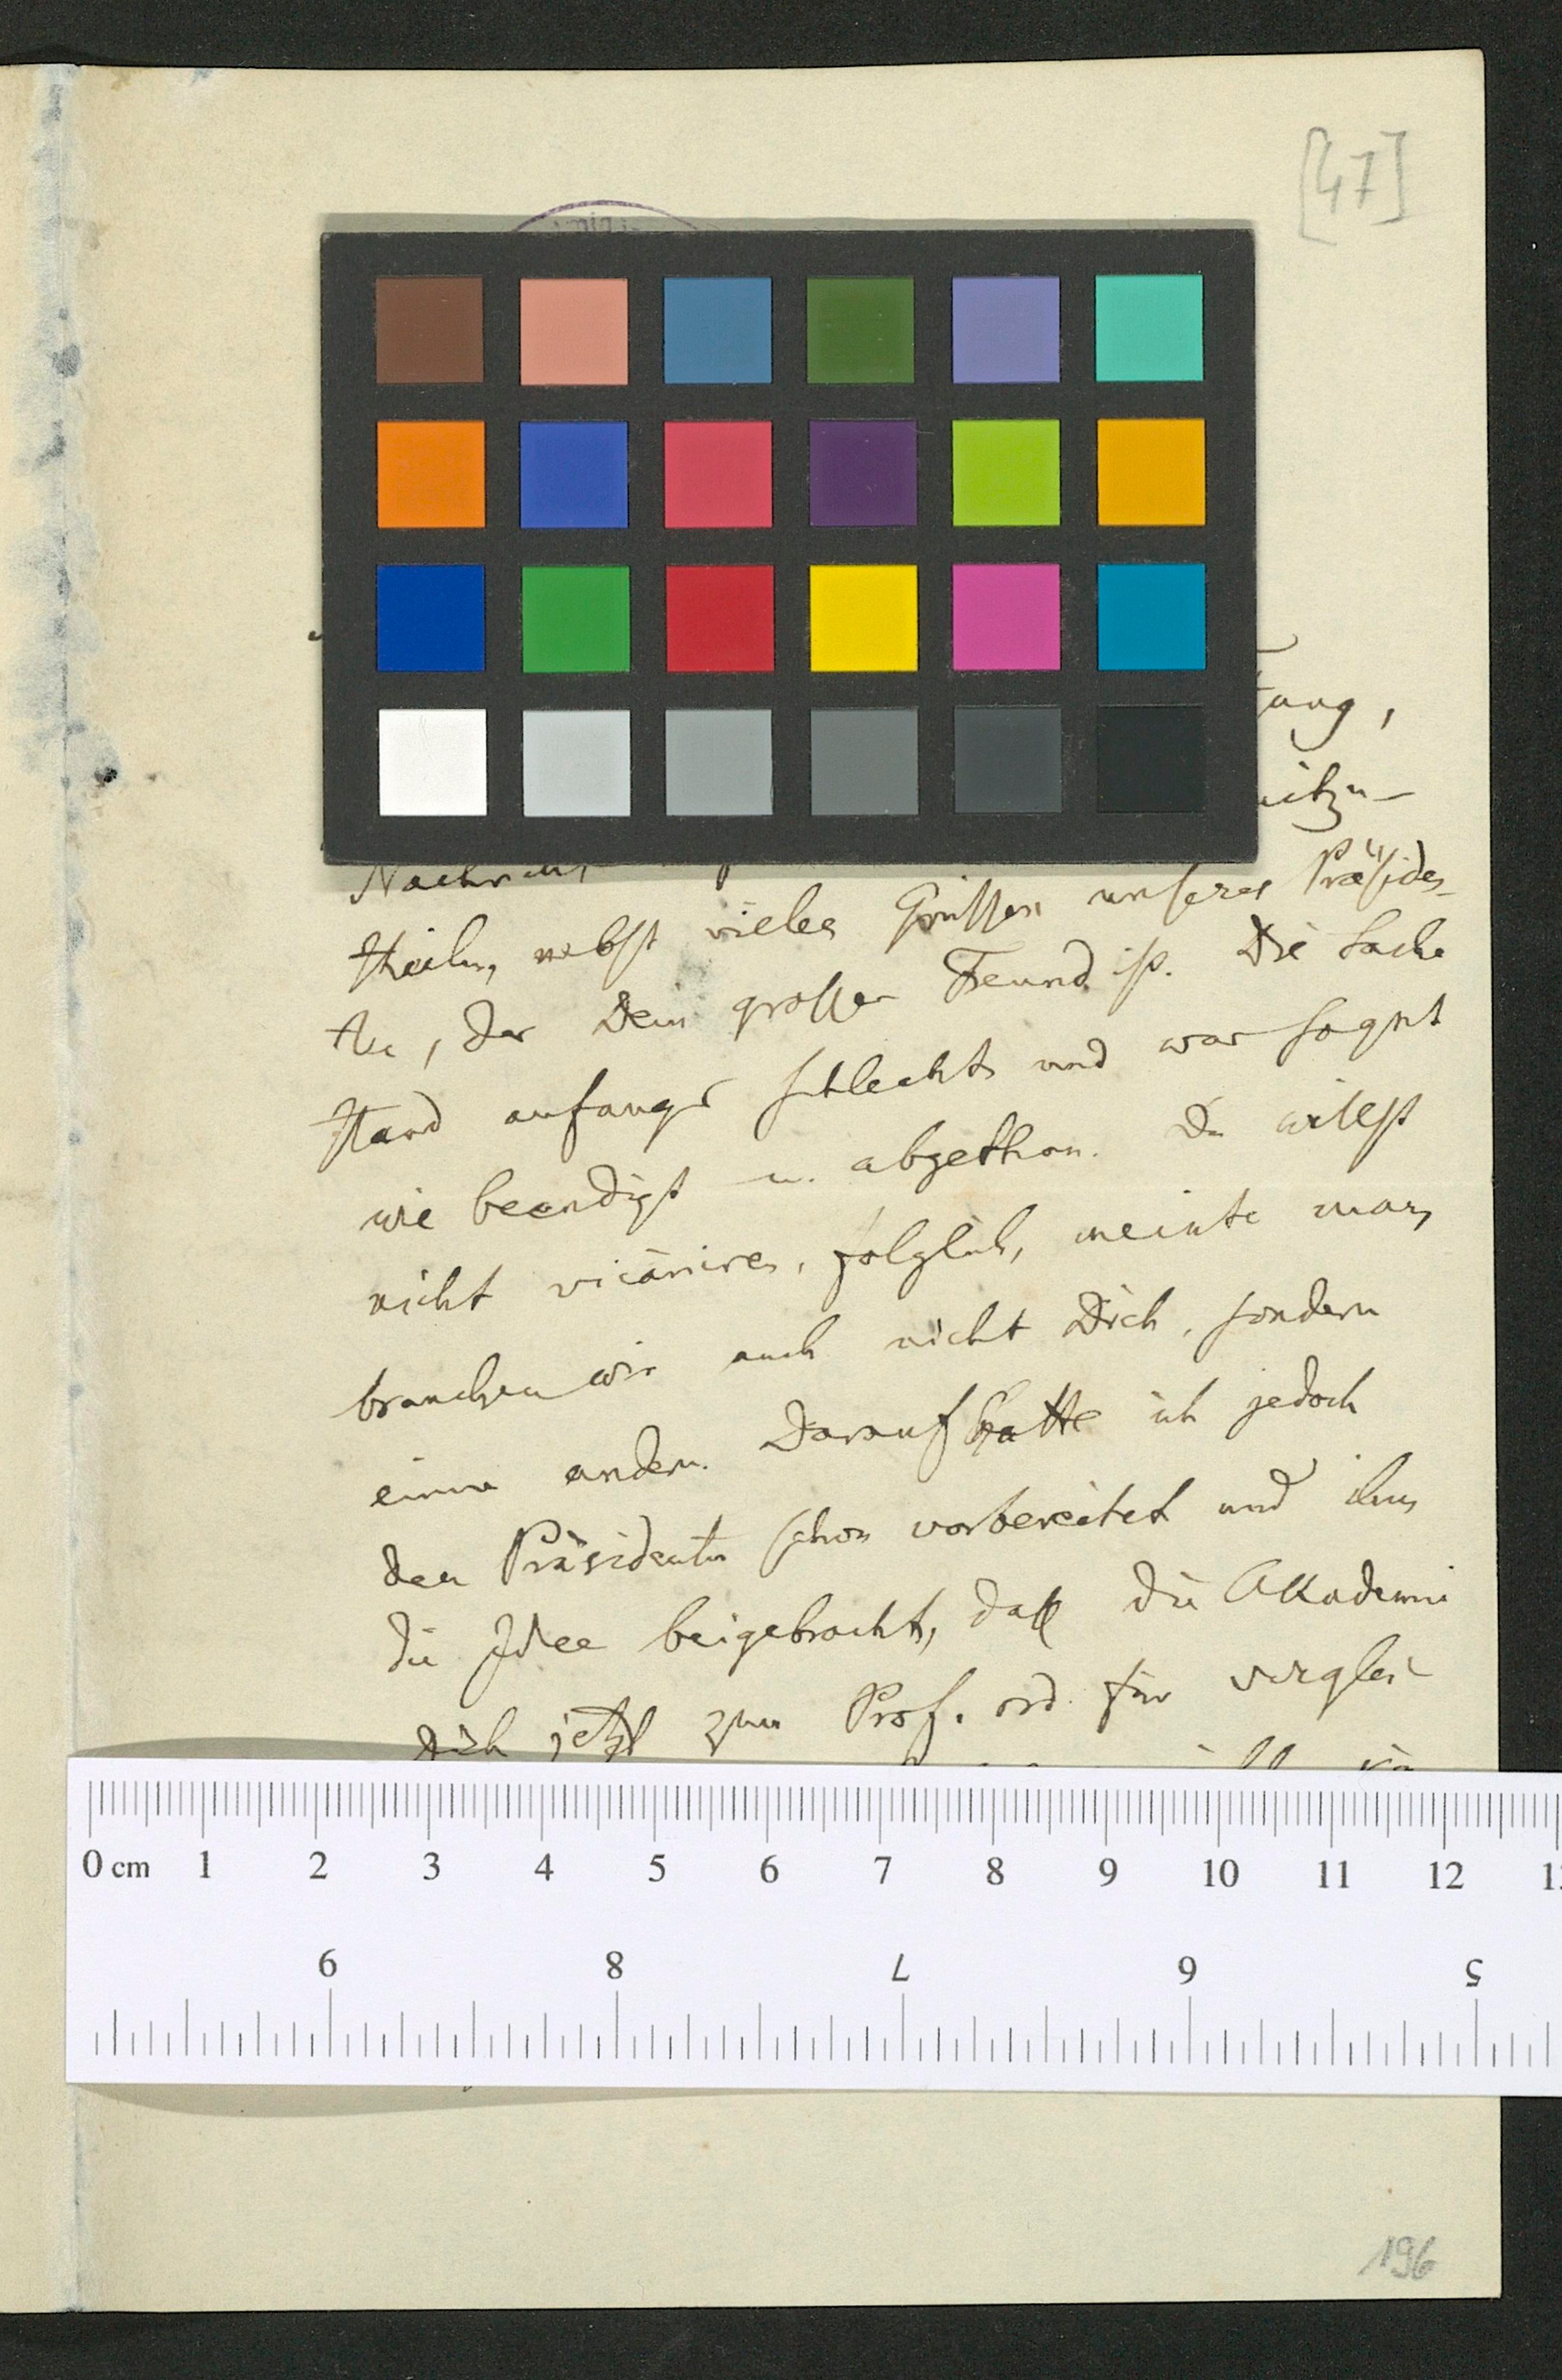 [47]
tung,
mitzu-
Nachricht
theilen, nebst vielen Grüssen unseres Präsiden-
ten, der Dein grosser Freund ist. Die Sache
stand anfangs schlecht und war so gut
wie beendigt u. abgethan. Du willst
nicht vicäriren, folglich, meinte man,
brauchen wir auch nicht Dich, sondern
einen andern. Darauf hatte ich jedoch
den Präsidenten schon vorbereitet und ihm
die Idee beigebracht, daß die Akademie
Dich jetzt zum Prof. ord. für verglei-
0 cm 1 2 3 4 5 6 7 8 9 10 11 12
9 8 7 6 5
196